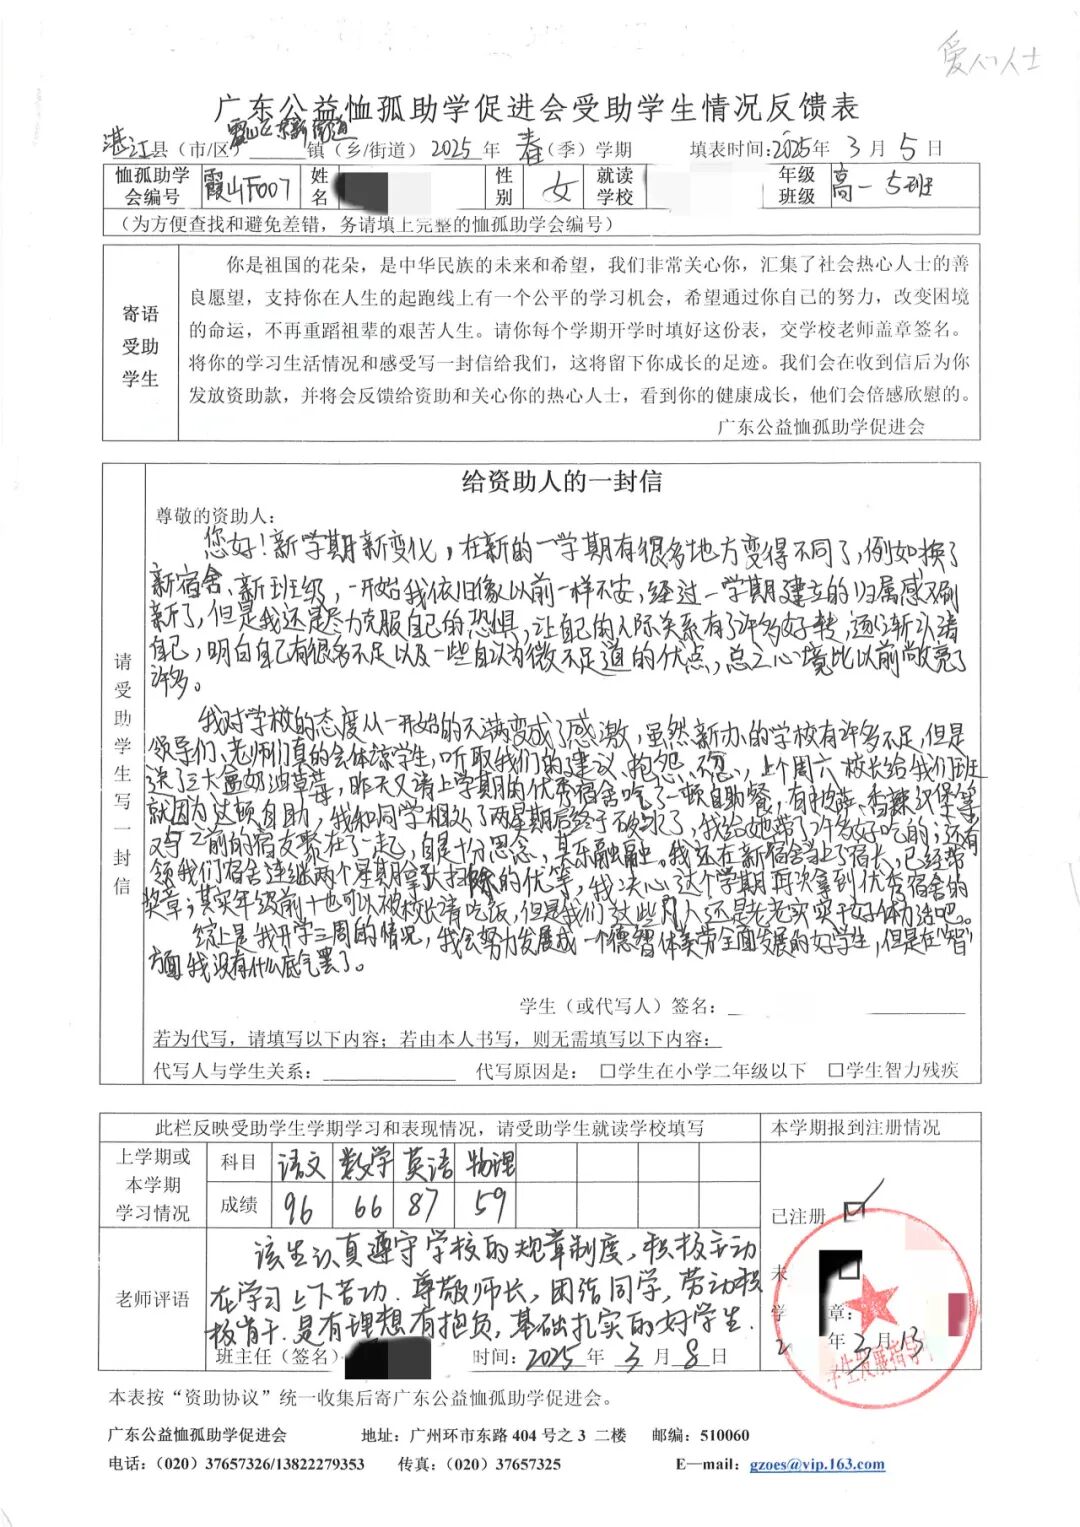 爱人人士
广东公益恤孤助学促进会受助学生情况反馈表
湛江县（市/区）霞山区东新街道镇（乡/街道）2025年春（季）学期 填表时间:2025年3月5日
恤孤助学会编号 霞山F007 姓名 性别 女 就读学校 年级班级 高一5班
（为方便查找和避免差错，务请填上完整的恤孤助学会编号）
寄语受助学生
你是祖国的花朵，是中华民族的未来和希望，我们非常关心你，汇集了社会热心人士的善
良愿望，支持你在人生的起跑线上有一个公平的学习机会，希望通过你自己的努力，改变困境
的命运，不再重蹈祖辈的艰苦人生。请你每个学期开学时填好这份表，交学校老师盖章签名。
将你的学习生活情况和感受写一封信给我们，这将留下你成长的足迹。我们会在收到信后为你
发放资助款，并将会反馈给资助和关心你的热心人士，看到你的健康成长，他们会倍感欣慰的。
广东公益恤孤助学促进会
请受助学生写一封信
给资助人的一封信
尊敬的资助人：
您好！新学期新变化，在新的一学期有很多地方变得不同了，例如换了
新宿舍、新班级，一开始我依旧像以前一样不安，经过一学期建立的归属感又刷
新了，但是我还是尽力克服自己的恐惧，让自己的人际关系有了许多好转，逐渐认清
自己，明白自己有很多不足以及一些自认为微不足道的优点，总之心境比以前敞亮了
许多。
我对学校的态度从一开始的不满变成了感激，虽然新办的学校有许多不足，但是
领导们、老师们真的会体谅学生，听取我们的建议、抱怨、不忿，上个周六校长给我们班
送了三大盒奶油草莓，昨天又请上学期的优秀宿舍吃了一顿自助餐，有披萨、香辣汉堡等，
就因为这顿自助，我和同学相处了两星期后终于破冰了，我给她带了许多好吃的；还有
又与之前的宿友聚在了一起，自是十分思念，其乐融融。我还在新宿舍当上了宿长，已经带
领我们宿舍连继两个星期拿到扫除的优等，我决心这个学期再次拿到优秀宿舍的
奖章；其实年级前十也可以被校长请吃饭，但是我们这些凡人还是老老实实干好体力活吧。
综上是我开学三周的情况，我会努力发展成一个德智体美劳全面发展的好学生，但是在“智”
方面我没有什么底气罢了。
学生（或代写人）签名：
若为代写，请填写以下内容；若由本人书写，则无需填写以下内容：
代写人与学生关系： 代写原因是： □学生在小学二年级以下 □学生智力残疾
此栏反映受助学生学期学习和表现情况，请受助学生就读学校填写 本学期报到注册情况
上学期或本学期学习情况 科目 语文 数学 英语 物理
成绩 96 66 87 59
已注册
未
学 章：
年3月13
学生发展指导
老师评语
该生认真遵守学校的规章制度，积极主动
在学习上下苦功．尊敬师长，团结同学，劳动积
极肯干．是有理想有抱负，基础扎实的好学生．
班主任（签名） 时间：2025年3月8日
本表按“资助协议”统一收集后寄广东公益恤孤助学促进会。
广东公益恤孤助学促进会 地址：广州环市东路404号之3 二楼 邮编：510060
电话：（020）37657326/13822279353 传真：（020）37657325 E—mail：gzoes@vip.163.com